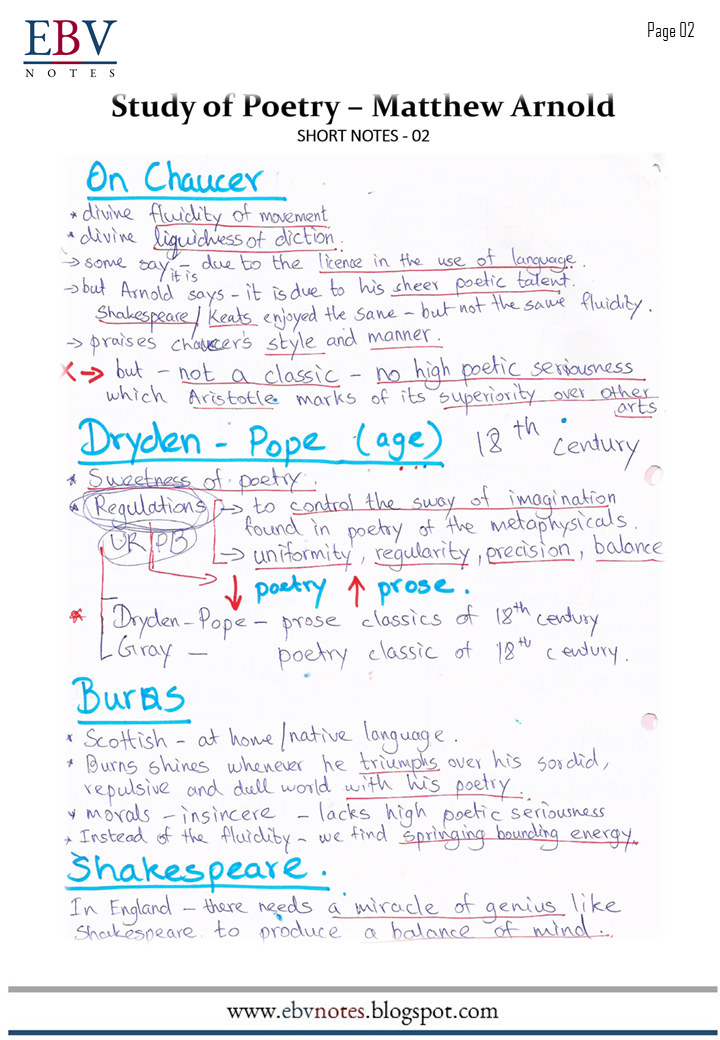 EBV
NOTES
Page 02
Study of Poetry – Matthew Arnold
SHORT NOTES - 02
On Chaucer
* divine fluidity of movement
* divine liquidness of diction.
→ some say it is – due to the licence in the use of language.
→ but Arnold says – it is due to his sheer poetic talent.
Shakespeare / Keats enjoyed the same – but not the same fluidity.
→ praises chaucer's style and manner.
X → but – not a classic – no high poetic seriousness
which Aristotle marks of its superiority over other
arts
Dryden – Pope (age) 18th century
* Sweetness of poetry.
* Regulations → to control the sway of imagination
found in poetry of the metaphysicals.
UR PB → uniformity, regularity, precision, balance
↓ poetry ↑ prose.
* Dryden – Pope – prose classics of 18th century
Gray – poetry classic of 18th century.
Burns
* Scottish – at home/native language.
* Burns shines whenever he triumphs over his sordid,
repulsive and dull world with his poetry.
* morals – insincere – lacks high poetic seriousness
* Instead of the fluidity – we find springing bounding energy.
Shakespeare.
In England – there needs a miracle of genius like
Shakespeare to produce a balance of mind.
www.ebvnotes.blogspot.com